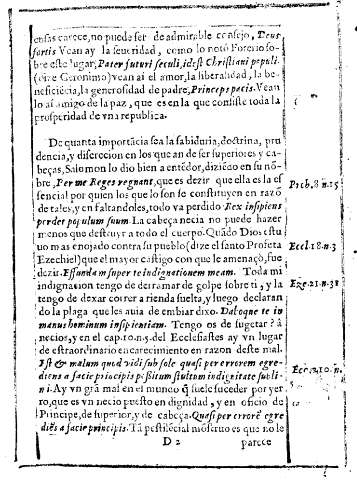 ensas carece, no puede ser de admirable consejo, Deus
fortis Vean ay la seueridad, como lo notò Forerio so-
bre este lugar; Pater futuri seculi, idest Christiani populi
(dize Geronimo) vean ai el amor, la liberalidad, la be-
neficiécia, la generosidad de padre, Princeps pacis. Vean
lo ai amigo de la paz, que es en la que consiste toda la
prosperidad de vna republica.
De quanta importãcia sea la sabiduria, doctrina, pru
dencia, y discrecion en los que an de ser superiores y ca-
beças, Salomon lo dio bien a entéder, diziédo en su nõ-
bre, Per me Reges regnant, que es dezir que ella es la es
sencial por quien los que lo son se constituyen en razõ
de tales, y en faltandoles, todo va perdido Rex insipiens
perdet populum suum. La cabeça necia no puede hazer
menos que destruyr a todo el cuerpo. Quãdo Dios estu
uo mas enojado contra su pueblo (dize el santo Profeta
Ezechiel) que el mayor castigo con que le amenaçò, fue
dezir. Effundam super te indignationem meam. Toda mi
indignacion tengo de derramar de golpe sobre ti, y la
tengo de dexar correr a rienda suelta, y luego declaran
do la plaga que les auia de embiar dixo. Daboque te in
manus hominum insipientium. Tengo os de sugetar? â
necios, y en el cap. 10. n. 5. del Ecclesiastes ay vn lugar
de estraordinario encarecimiento en razon deste mal.
Est & malum quod vidi sub sole quasi per errorem egre-
diens a facie principis positum stultum in dignitate subli-
ni. Ay vn grã mal en el mundo q̃ suele suceder por yer
ro, que es vn necio puesto en dignidad, y en oficio de
Principe, de superior, y de cabeça. Quasi per errorẽ egre
diẽs a facie principis. Tã pestilẽcial mõstruo es que no le
D 2 parece
Prob. 8 n. 15
Eccl. 18. n. 3
Eze. 21. n. 38
Ecc. 10. n.